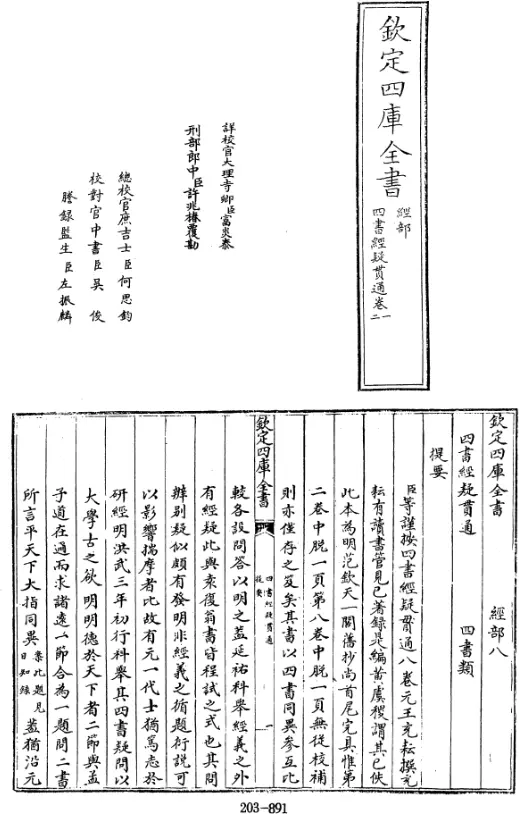 欽定四庫全書
經部
四書經疑貫通卷一二
詳校官大理寺卿臣富炎泰
刑部郎中臣許兆椿覆勘
總校官庶吉士臣何思鈞
校對官中書臣吳俊
謄錄監生臣左振麟
欽定四庫全書 經部八
四書經疑貫通 四書類
提要
臣等謹按四書經疑貫通八卷元王充耘撰充
耘有讀書管見已著錄是編黃虞稷謂其已佚
此本為明范欽天一閣舊抄尚首尾完具惟第
二卷中脫一頁第八卷中脫一頁無從校補
則亦僅存之笈矣其書以四書同異參互比
欽定四庫全書
四書經疑貫通
提要
一
較各設問答以明之蓋延祐科舉經義之外
有經疑此與袁俊翁書皆程試之式也其間
辨別疑似頗有發明非經義之循題衍說可
以影響揣摩者比故有元一代士猶篤志於
研經明洪武三年初行科舉其四書疑問以
大學古之欲明明德於天下者二節與孟
子道在邇而求諸遠一節合為一題問二書
所言平天下大指同異案此題見日知錄蓋猶沿元
203-891